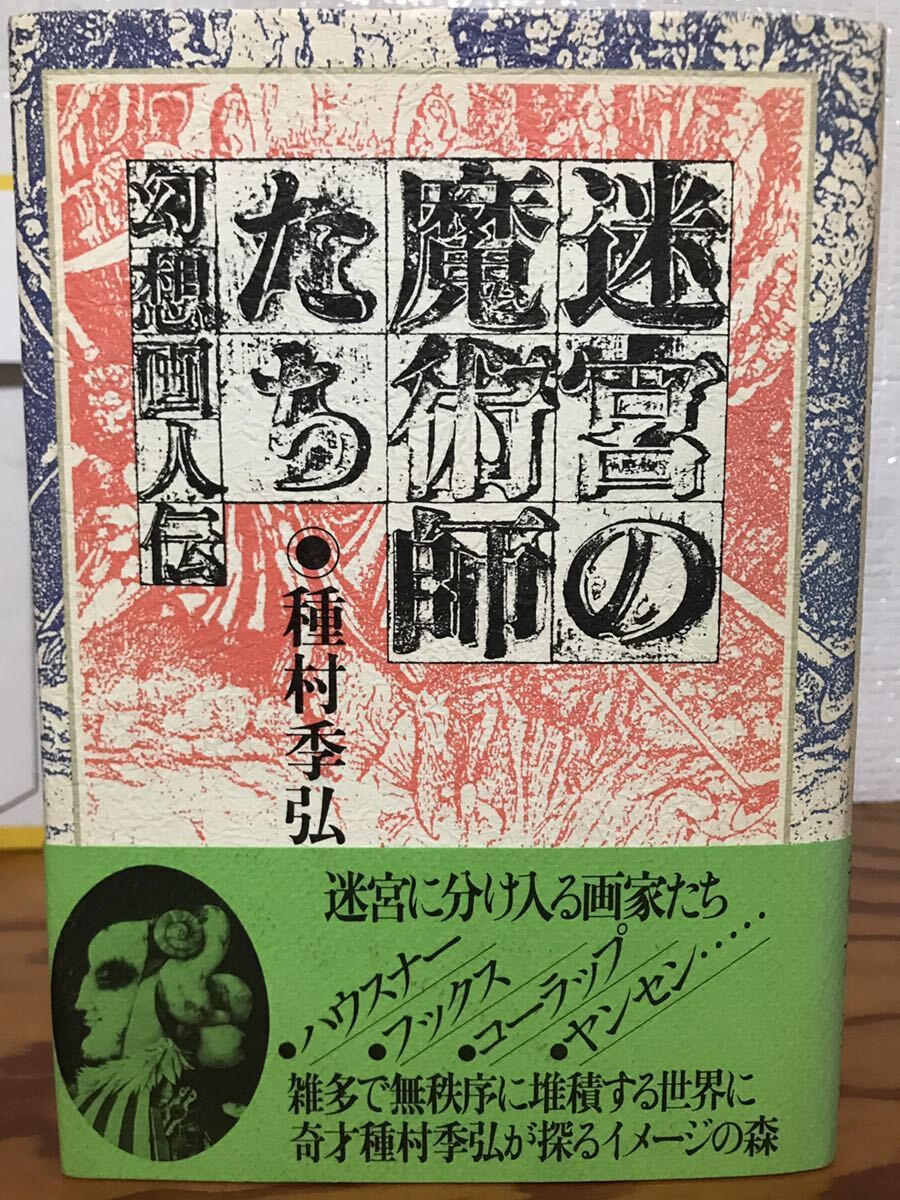 迷宮の
魔術師
たち
幻想画人伝
◉種村季弘
迷宮に分け入る画家たち
●ハウスナー
●フックス
●コーラップ
●ヤンセン・・・・・
雑多で無秩序に堆積する世界に
奇才種村季弘が探るイメージの森